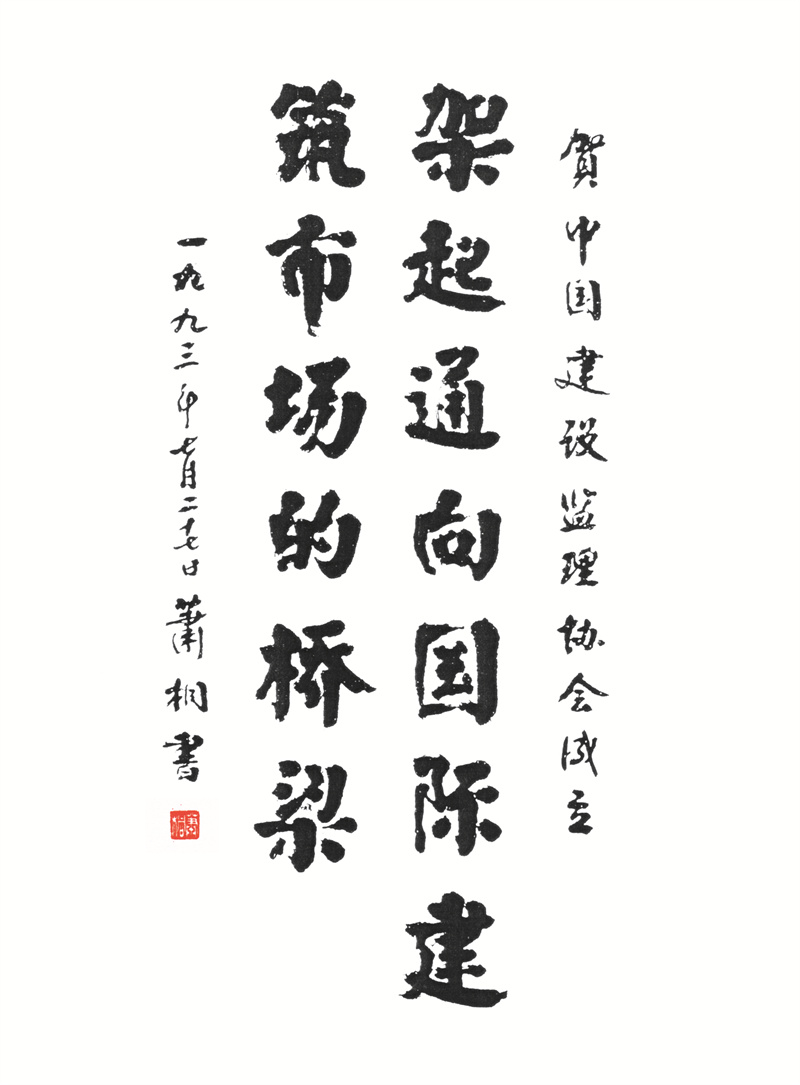 贺中国建设监理协会成立
架起通向国际建
筑市场的桥梁
一九九三年七月二十七日萧桐书
萧桐